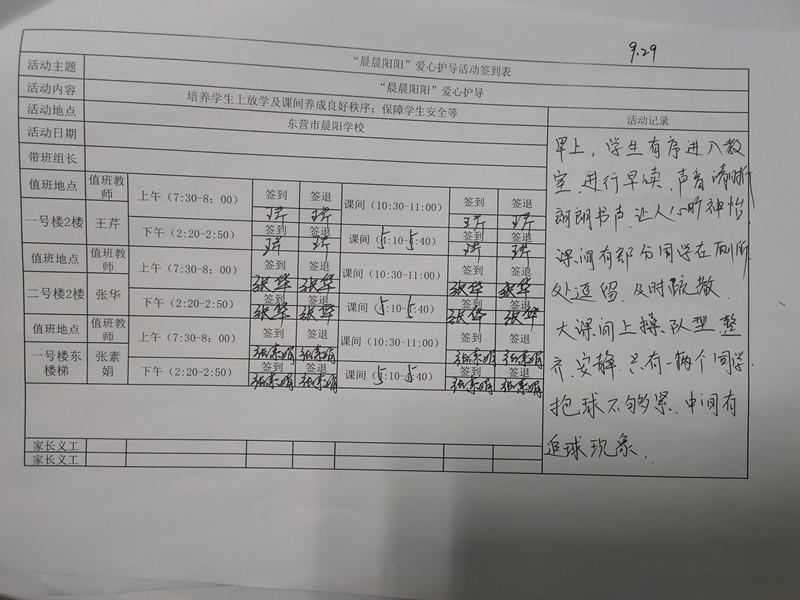 9.29
“晨晨阳阳”爱心护导活动签到表
活动主题 “晨晨阳阳”爱心护导
活动内容 培养学生上放学及课间养成良好秩序；保障学生安全等
活动地点 东营市晨阳学校
活动日期
带班组长
值班地点 值班教师 上午（7:30-8：00） 签到 签退 课间（10:30-11:00） 签到 签退
王芹 王芹 王芹 王芹
一号楼2楼 王芹 下午（2:20-2:50） 签到 签退 课间（5:10-5:40） 签到 签退
王芹 王芹 王芹 王芹
值班地点 值班教师 上午（7:30-8：00） 签到 签退 课间（10:30-11:00） 签到 签退
张华 张华 张华 张华
二号楼2楼 张华 下午（2:20-2:50） 签到 签退 课间（5:10-5:40） 签到 签退
张华 张华 张华 张华
值班地点 值班教师 上午（7:30-8：00） 签到 签退 课间（10:30-11:00） 签到 签退
张素娟 张素娟 张素娟 张素娟
一号楼东楼梯 张素娟 下午（2:20-2:50） 签到 签退 课间（5:10-5:40） 签到 签退
张素娟 张素娟 张素娟 张素娟
家长义工
家长义工
活动记录
早上，学生有序进入教
室，进行早读，声音清晰
朗朗书声，让人心旷神怡.
课间有部分同学在厕所
处逗留，及时疏散.
大课间上操队型整
齐，安静，只有一两个同学
抱球不够紧，中间有
追球现象.